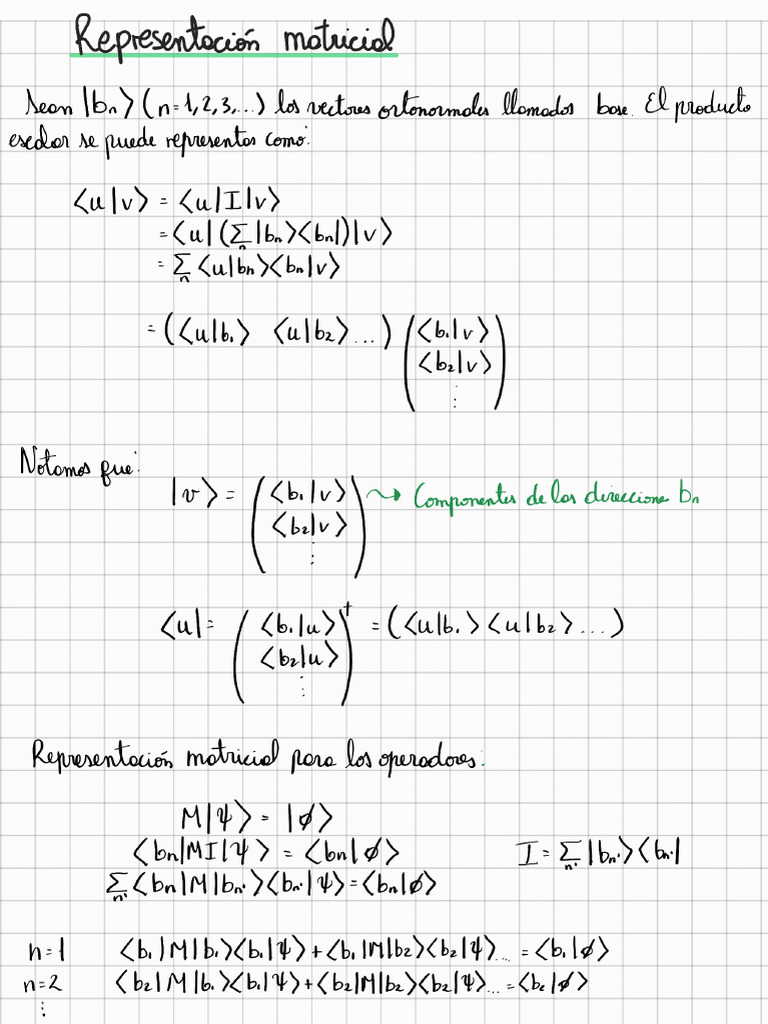 Representación matricial
Sean |bₙ⟩ (n=1,2,3,...) los vectores ortonormales llamados base. El producto
escalar se puede representar como:
⟨u|v⟩ = ⟨u|I|v⟩
= ⟨u|(∑ₙ|bₙ⟩⟨bₙ|)|v⟩
= ∑ₙ⟨u|bₙ⟩⟨bₙ|v⟩
= (⟨u|b₁⟩ ⟨u|b₂⟩ ...) (⟨b₁|v⟩
⟨b₂|v⟩
⋮)
Notamos que:
|v⟩ = (⟨b₁|v⟩ ⤳ Componentes de las direccione bₙ
⟨b₂|v⟩
⋮)
⟨u| = (⟨b₁|u⟩)† = (⟨u|b₁⟩ ⟨u|b₂⟩ ...)
⟨b₂|u⟩
⋮
Representación matricial para los operadores:
M|Ψ⟩ = |ϕ⟩
⟨bₙ|MI|Ψ⟩ = ⟨bₙ|ϕ⟩ I = ∑ₙ'|bₙ'⟩⟨bₙ'|
∑ₙ'⟨bₙ|M|bₙ'⟩⟨bₙ'|Ψ⟩ = ⟨bₙ|ϕ⟩
n=1 ⟨b₁|M|b₁⟩⟨b₁|Ψ⟩ + ⟨b₁|M|b₂⟩⟨b₂|Ψ⟩ ... = ⟨b₁|ϕ⟩
n=2 ⟨b₂|M|b₁⟩⟨b₁|Ψ⟩ + ⟨b₂|M|b₂⟩⟨b₂|Ψ⟩ ... = ⟨b₂|ϕ⟩
⋮